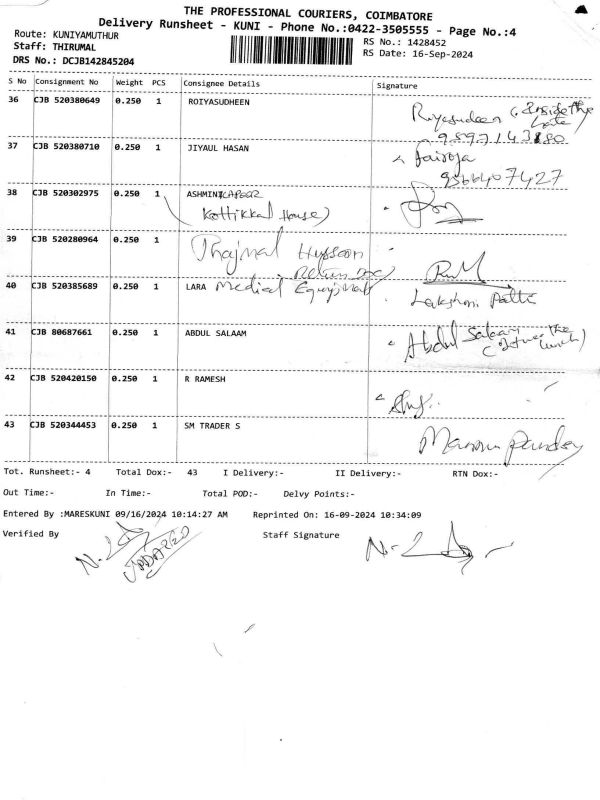 THE PROFESSIONAL COURIERS, COIMBATORE
Delivery Runsheet - KUNI - Phone No.:0422-3505555 - Page No.:4
Route: KUNIYAMUTHUR
RS No.: 1428452
Staff: THIRUMAL
RS Date: 16-Sep-2024
DRS No.: DCJB142845204
S No Consignment No Weight PCS Consignee Details Signature
36 CJB 520380649 0.250 1 ROIYASUDHEEN
Riyasudeen (Inside the Gate)
37 CJB 520380710 0.250 1 JIYAUL HASAN
9566407427
38 CJB 520302975 0.250 1 ASHMIN
Kottikkal House)
39 CJB 520280964 0.250 1 Thajmal Hussain
40 CJB 520385689 0.250 1 LARA Medical
Lakshmi
41 CJB 80687661 0.250 1 ABDUL SALAAM
Abdul Salaam
42 CJB 520420150 0.250 1 R RAMESH
43 CJB 520344453 0.250 1 SM TRADER S
Pandey
Tot. Runsheet:- 4 Total Dox:- 43 I Delivery:- II Delivery:- RTN Dox:-
Out Time:- In Time:- Total POD:- Delvy Points:-
Entered By :MARESKUNI 09/16/2024 10:14:27 AM Reprinted On: 16-09-2024 10:34:09
Verified By Staff Signature